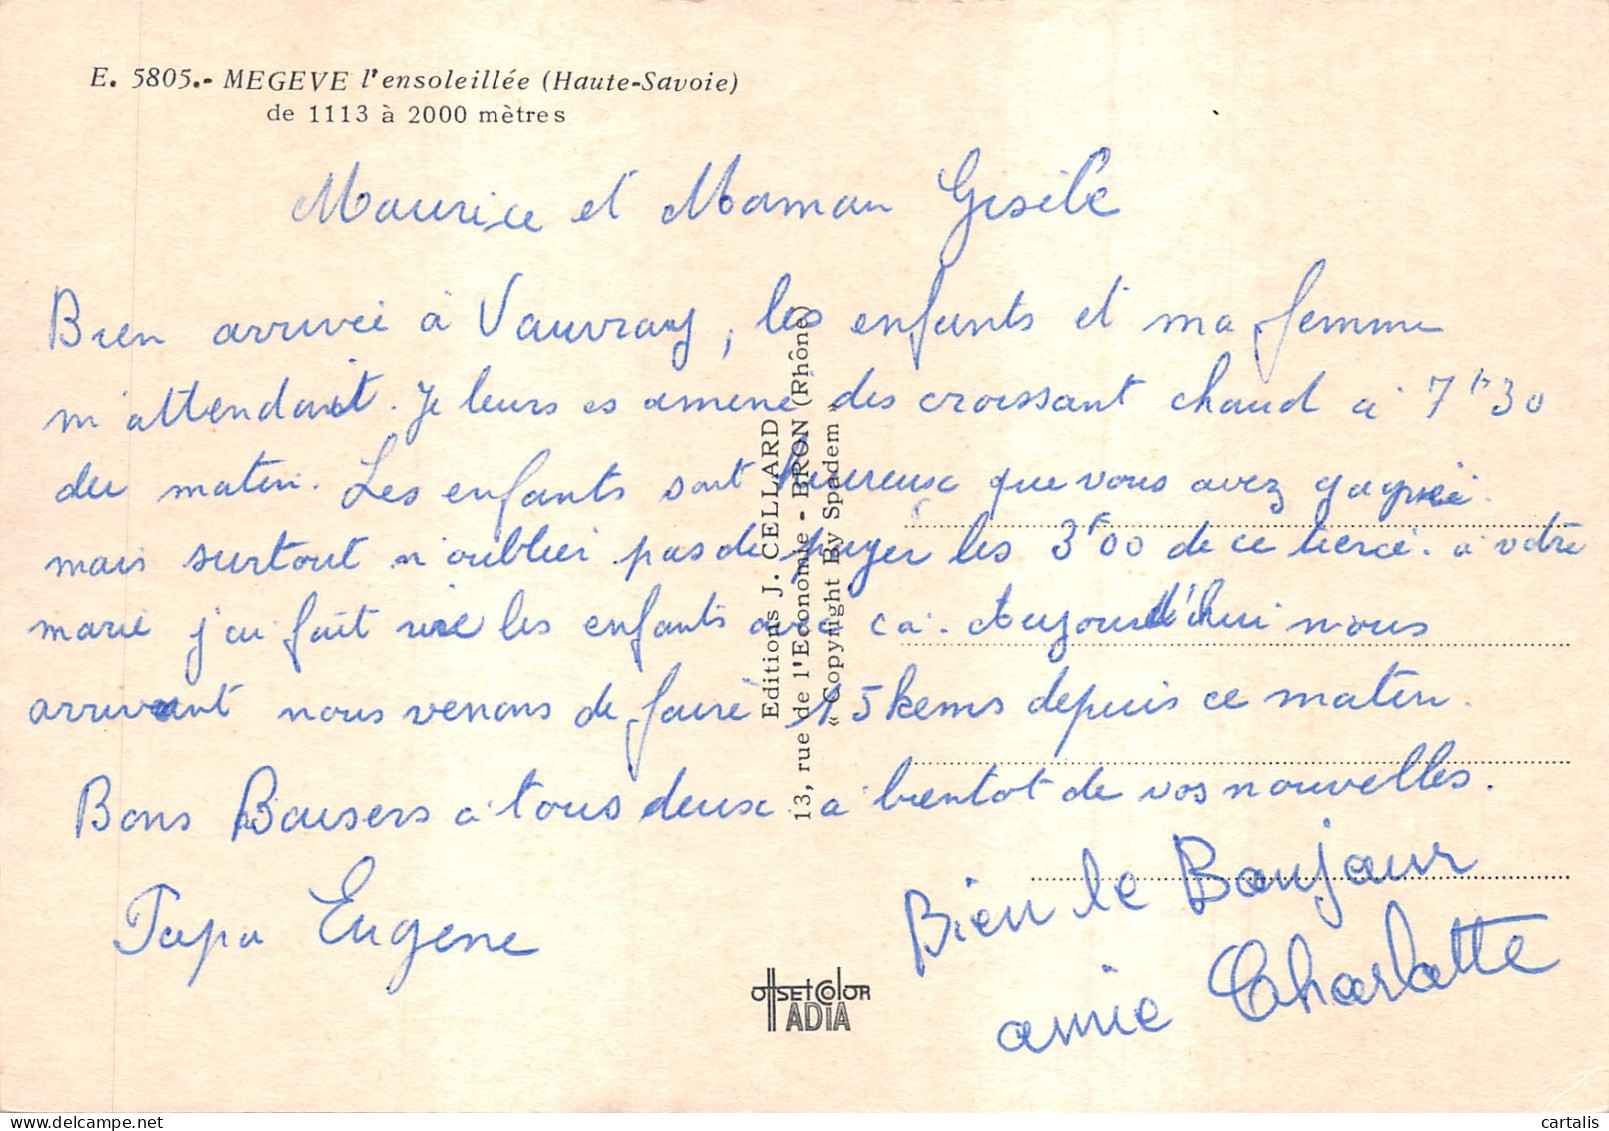 E. 5805.- MEGEVE l'ensoleillée (Haute-Savoie)
de 1113 à 2000 mètres
Maurice et Maman Gisèle
Bien arrivée à Vauvray, les enfants et ma femme
m'attendait. Je leurs es amené des croissant chaud à 7h30
du matin. Les enfants sont heureux que vous avez gagnée.
mais surtout n'oublier pas de payer les 3F00 de ce tiercé. à votre
marie j'ai fait rire les enfants avec ca. Aujourd'hui nous
arrivant nous venons de faire 15 kems depuis ce matin.
Bons Baisers à tous deux. à bientot de vos nouvelles.
Papa Eugene
Bien le Bonjour
amie Charlotte
Editions J. CELLARD
13, rue de l'Economie - BRON (Rhône)
« Copyright By Spadem »
OFFSET COLOR
ADIA
cartalis